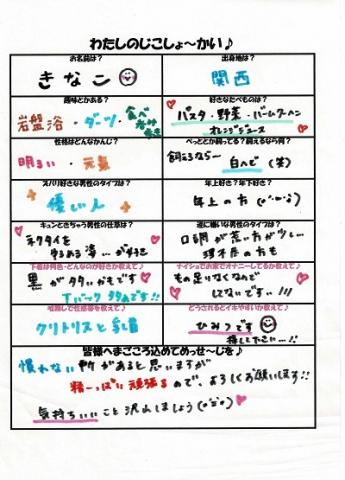 わたしのじこしょ～かい♪
お名前は？
きなこ
出身地は？
関西
趣味とかある？
岩盤浴・ダーツ・食べ歩き
好きなたべものは？
パスタ・野菜・バームクーヘン
オレンジジュース
性格はどんなかんじ？
明るい・元気
ぺっととか飼ってる？飼えるなら何？
飼えるなら〜 白ヘビ（笑）
ズバリ好きな男性のタイプは？
優しい人
年上好き？年下好き？
年上の方
キュンときちゃう男性の仕草は？
ネクタイを
ゆるめる姿…が好き
逆に嫌いな男性のタイプは？
口調が荒い方が少し…
理不尽の方も
下着は何色・どんなのが好きか教えて♪
黒がタタいかもです
Tバック多めです!!
ナイショでお家でオナニーしてるか教えて♪
もの足りなくなんで
してないです…!!!
何隠しで性感帯を教えて♪
クリトリスと乳首
どうされるとイキやすいか教えて♪
ひみつです
探してください…!!
皆様へまごころ込めてめっせ～じを♪
慣れない所があると思いますが
精一っぱい頑張るので、よろしくお願いします!!
気持ちいいこと沢山しましょう